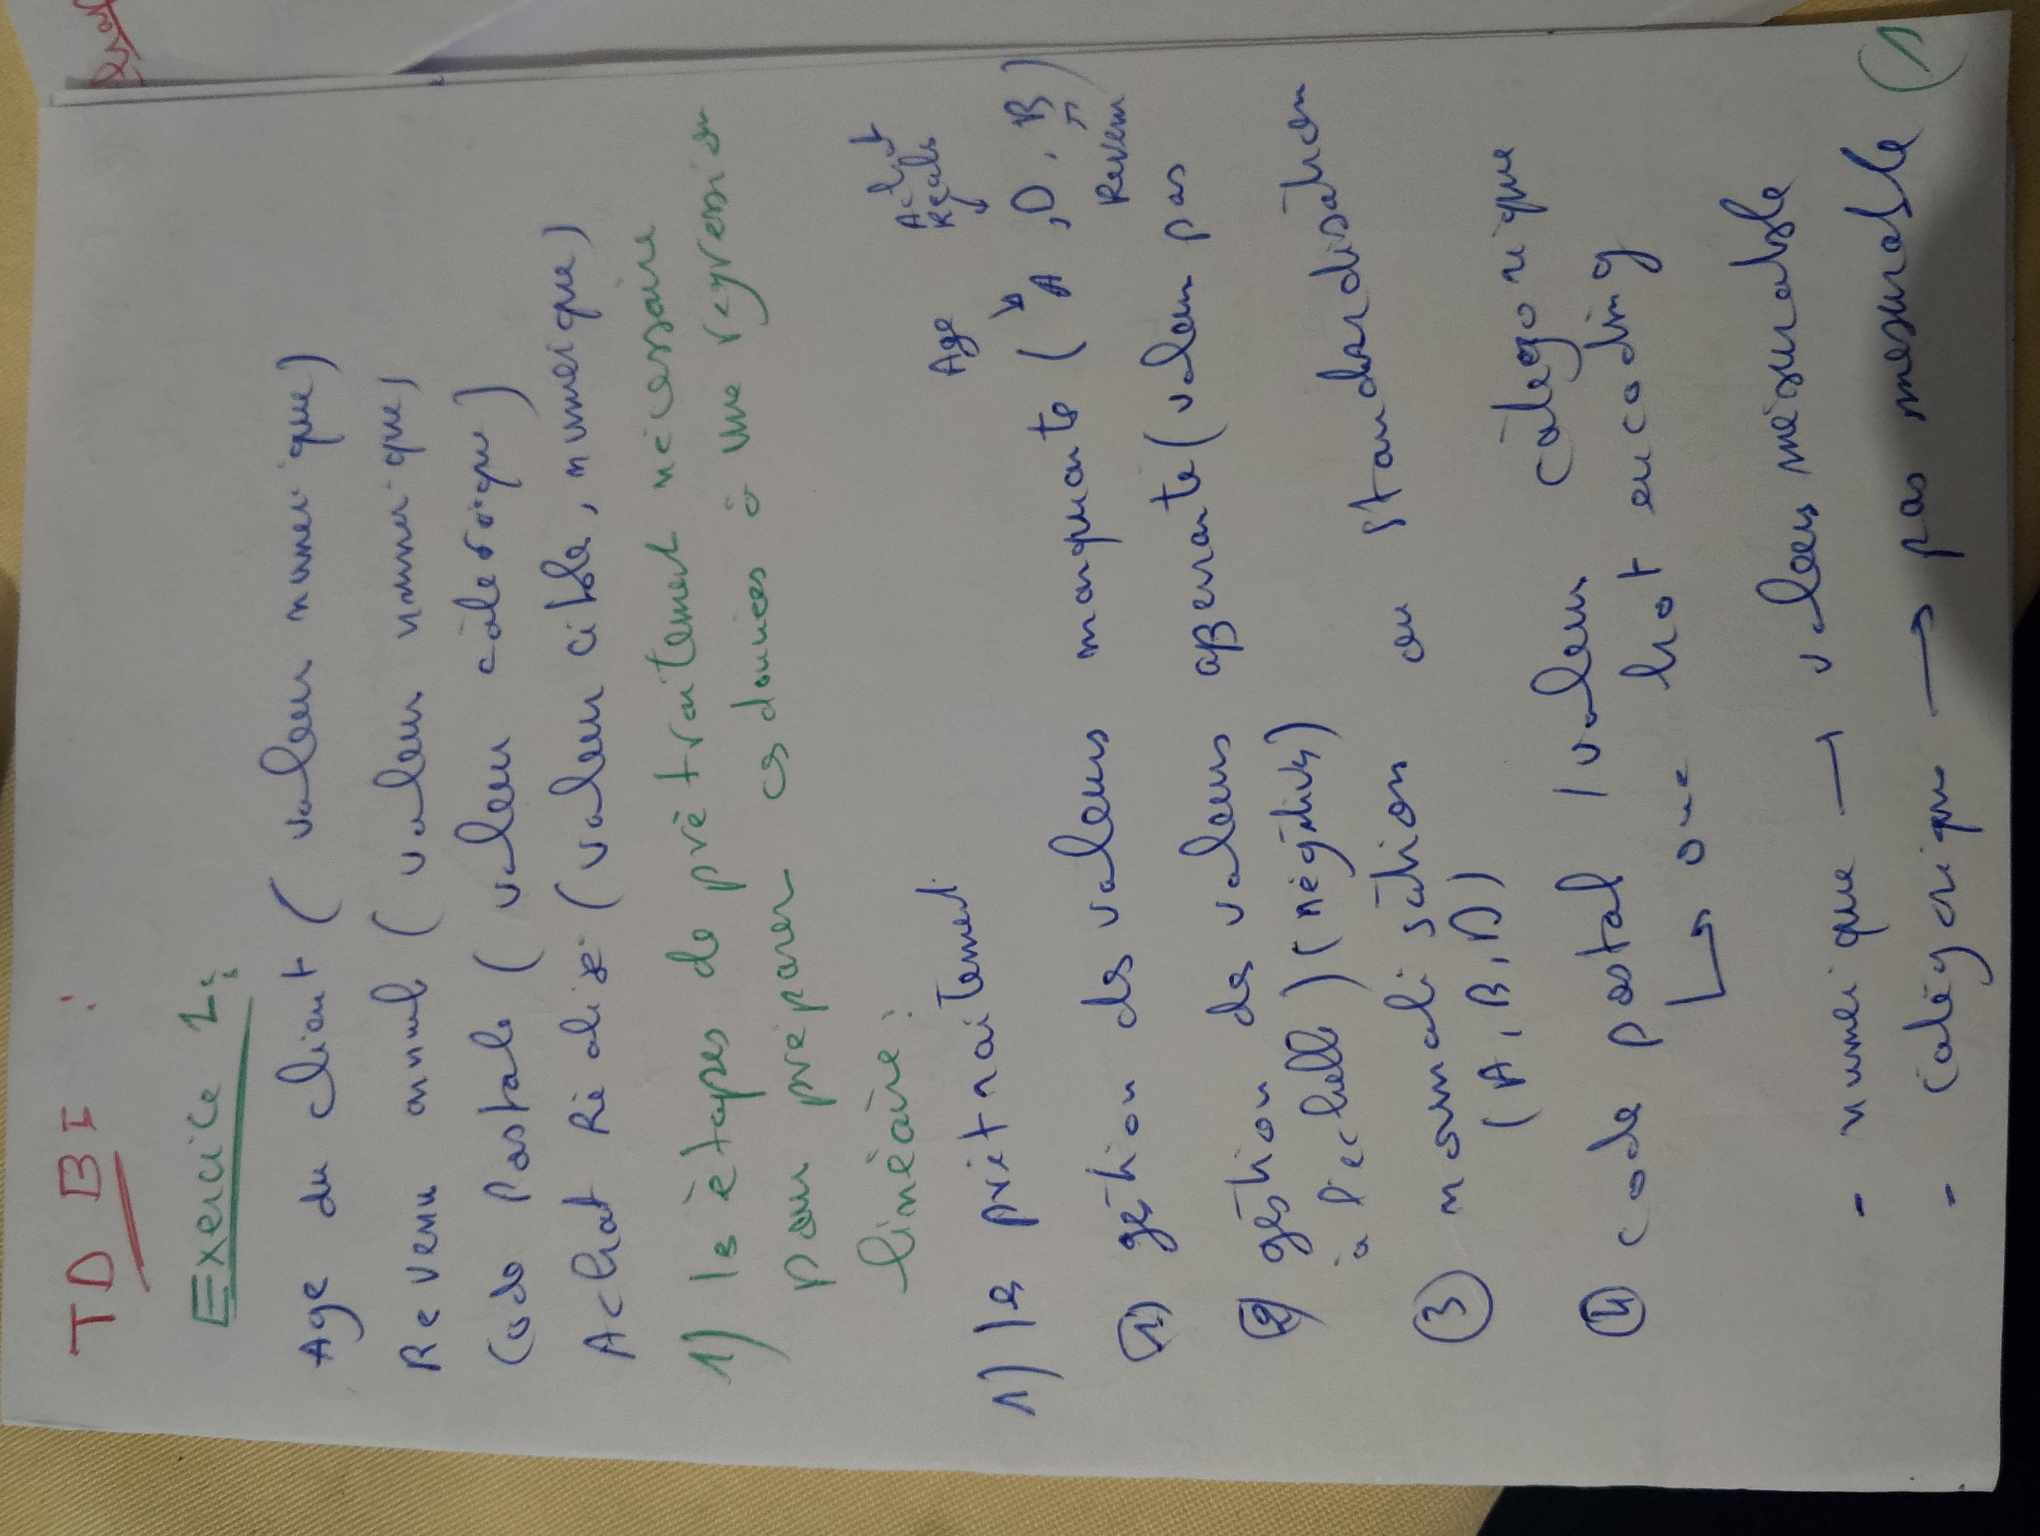 TD BI :
Exercice 1:
Age du client ( valeur numerique)
Revenu annuel ( valeur numerique)
Code Postale ( valeur catégorique)
Achat Réalisé (valeur cible, numerique)
1) les ètapes de prètraitement nécessaire
pour préparer ces données à une regression
linéaire :
1) les prétraitement
Age
Achat
Réalis
1) géstion des valeurs manquante ( A , D, B )
Revenu
2) gestion des valeurs aberrante (valeur pas
à l'echelle) (négitives)
3 normalisation ou standardisation
( A, B, D)
4 code postal / valeur catégorique
↳ one hot encoding
- numerique → valeurs mésurable
- catégorique → pas mesurable
(1